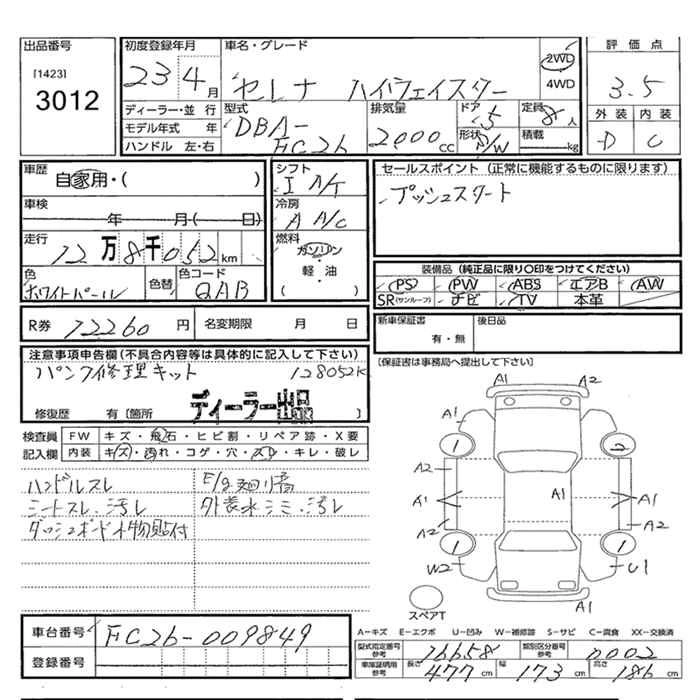 出品番号 初度登録年月 車名・グレード 評価点
[1423] 3012
23年 4月 セレナ ハイウェイスター 2WD 4WD 3.5
外装 内装
D C
ディーラー・並行 モデル年式 年 ハンドル 左・右
型式 DBA-FC26
排気量 2000cc
ドア 5 形状 S/W
定員 8人 積載 kg
車歴 自家用・( )
車検 年 月( 日)
走行 12万8千052km
色 ホワイトパール 色替 色コード QAB
シフト I A/T
冷房 A A/C
燃料 ガソリン・軽油 ( )
セールスポイント(正常に機能するものに限ります)
プッシュスタート
装備品(純正品に限り○印をつけてください)
PS PW ABS エアB AW
SR(サンルーフ) ナビ TV 本革
R券 12260円 名変期限 月 日
新車保証書 有・無 後日品
[保証書は事務局へ提出して下さい]
注意事項申告欄(不具合内容等は具体的に記入して下さい)
パンク修理キット 128052K
修復歴 有[箇所 ディーラー出品 ]
検査員記入欄 FW キズ・飛石・ヒビ割・リペア跡・X要
内装 キズ・汚れ・コゲ・穴・スレ・キレ・破レ
ハンドルスレ E/g廻り
シートスレ・汚レ 外装水シミ・汚レ
ダッシュボード小物貼付
A1 A2
A1 1 2
A2
A1 A1 A1
A2 A2
1 1
W2 U1
スペアT
A-キズ E-エクボ U-凹み W-補修跡 S-サビ C-腐食 XX-交換済
車台番号 FC26-009849
登録番号
型式指定番号参考 16658 類別区分番号参考 0002
車庫証明用参考 長さ 477cm 幅 173cm 高さ 186cm